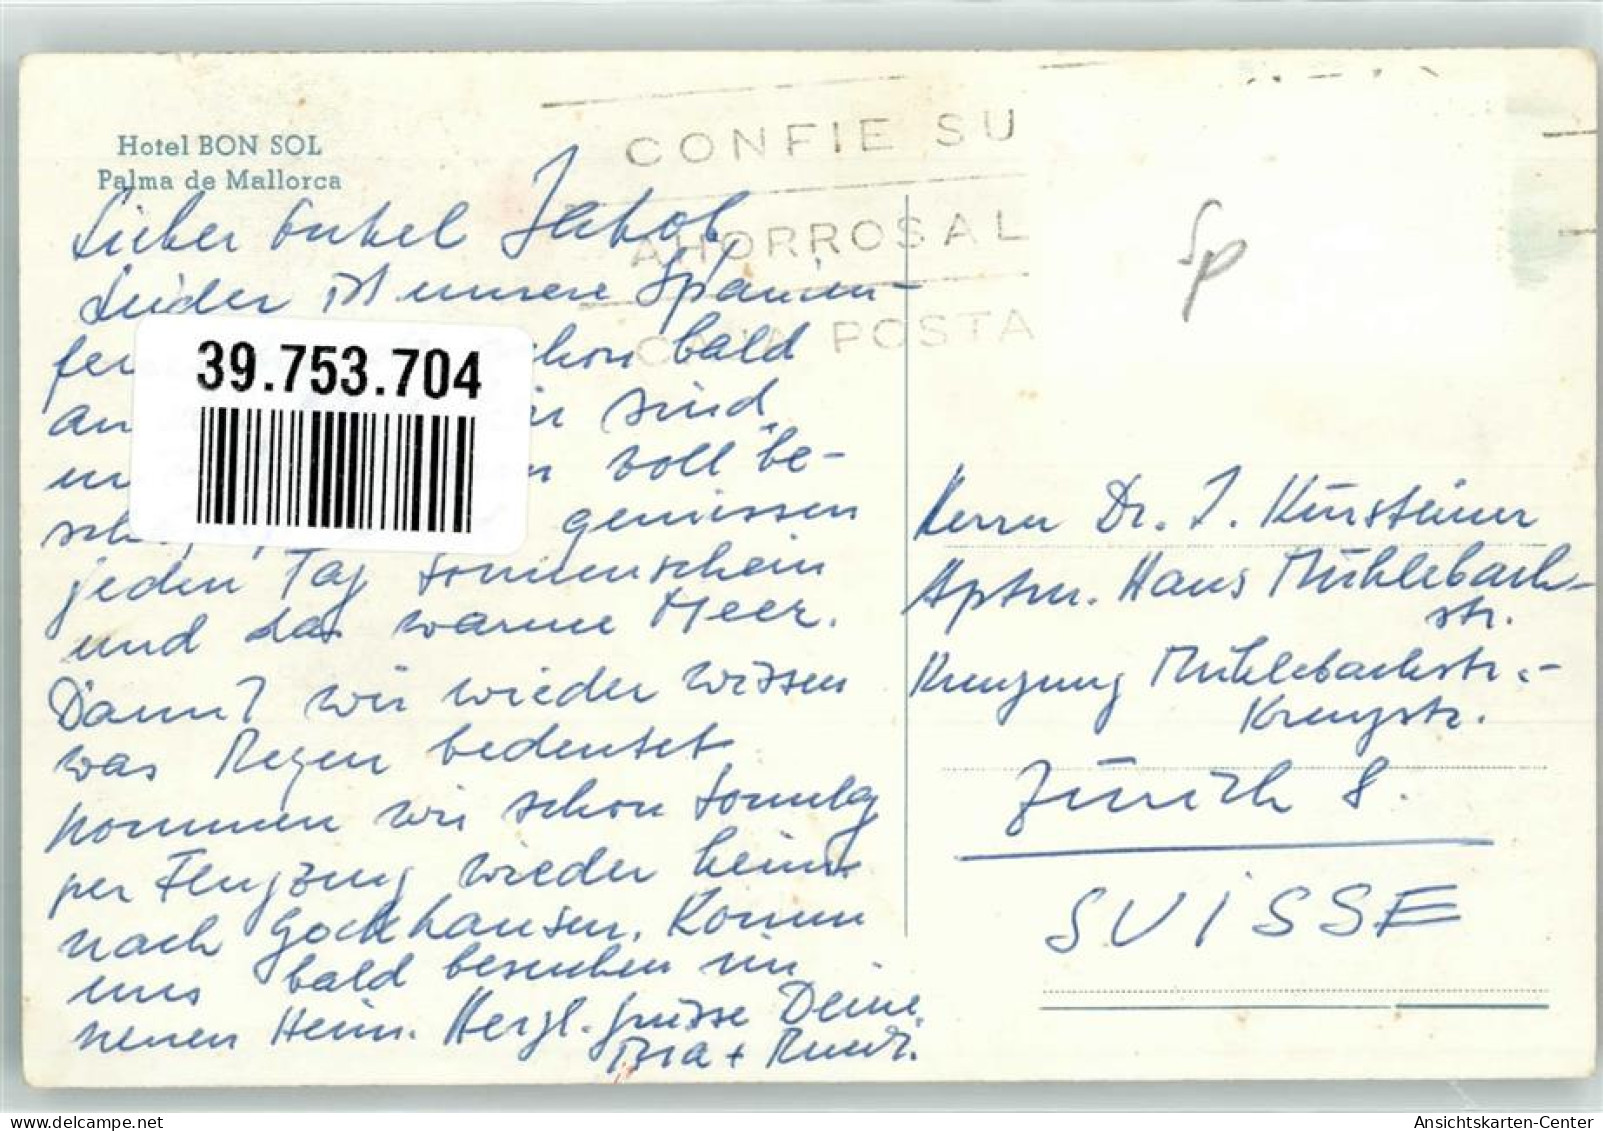 Hotel BON SOL
Palma de Mallorca
CONFIE SU
AHORROS A L
POSTA
Sp
Lieber Onkel Jakob,
Leider ist unsere Spanien-
fer schon bald
an sind
un voll be-
sch geniessen
jeden Tag Sonnenschein
und das warme Meer.
Damit wir wieder wissen
was Regen bedeutet
kommen wir schon Sonntag
per Flugzeug wieder heim
nach Gockhausen. Komm
uns bald besuchen im
neuen Heim. Herzl. Grüsse Deine
+ Ruedi.
39.753.704
Herrn Dr. J. Kürsteiner
Aptm. Haus Mühlebach-
str.
Kreuzung Mühlebachstr.-
Kreuzstr.
Zürich 8.
SUISSE
Ansichtskarten-Center